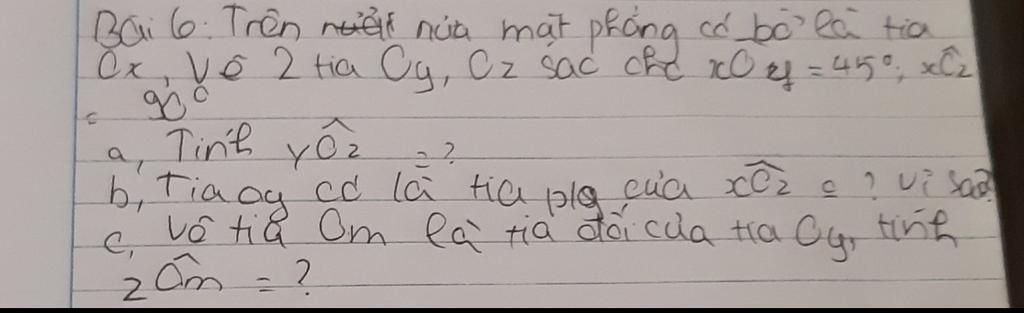 Bài 6: Trên nửa mặt phẳng có bờ là tia
Ox, Vẽ 2 tia Oy, Oz sao cho xOy = 45°; xÔz
= 90°
a, Tính yÔz = ?
b, Tia oy có là tia plg của xÔz = ? Vì sao?
c, Vẽ tia Om là tia đối của tia Oy, tính
zÔm = ?